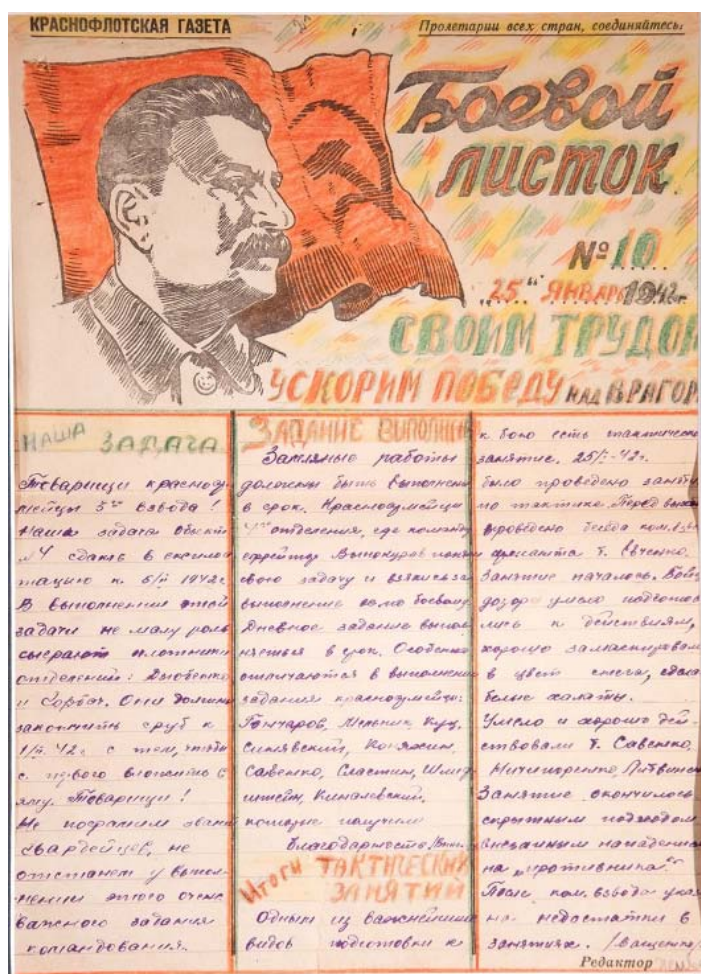 КРАСНОФЛОТСКАЯ ГАЗЕТА
Пролетарии всех стран, соединяйтесь!
Боевой
ЛИСТОК
№ 10
„25“ ЯНВАРЯ 1942 г.
СВОИМ ТРУДОМ
УСКОРИМ ПОБЕДУ НАД ВРАГОМ
НАША ЗАДАЧА
Товарищи красноар-
мейцы 5го взвода!
Наша задача объект
№4 сдать в эксплоа-
тацию к 5/II 1942г.
В выполнении этой
задачи не малу роль
сыграют плотники
отделений: Дзюбенко
и Горбач. Они должны
закончить сруб к
1/II 42г с тем, чтобы
с первого вложить в
яму. Товарищи!
Не посрамим звания
гвардейцев, не
отстанем у выпол-
нении этого очень
важного задания
командования.
ЗАДАНИЕ ВЫПОЛНИМ
Земляные работы
должны быть выполнены
в срок. Красноармейцы
4го отделения, где команд
ефрейтор Винокуров
свою задачу и взялись за
выполнение по боевому
Дневное задание выпол
няеться в срок. Особенно
отличаются в выполнении
задания красноармейцы:
Гончаров, Мельник, Куц,
Синявский, Коняхин,
Савенко, Сластин,
Киналевский,
которые получили
благодарность.
Итоги ТАКТИЧЕСКИХ
ЗАНЯТИЙ
Одним из важнейших
видов подготовки к
к бою есть тактическ
занятие. 25/I-42г.
было проведено заняти
по тактике. Перед
проведено беседа ком. взв.
сержанта т. Евченко.
Занятие началось. Бойц
дозора умело подготов
лись к действиям,
хорошо замаскировал
в цвет снега,
белые халаты.
Умело и хорошо дей-
ствовали т. Савенко,
Ничипоренко, Литвинен
Занятие окончилось
скрытным подходом
внезапным нападение
на „противника“
После ком. взвода указ
на недостатки в
занятиях. /Ващенко/
Редактор